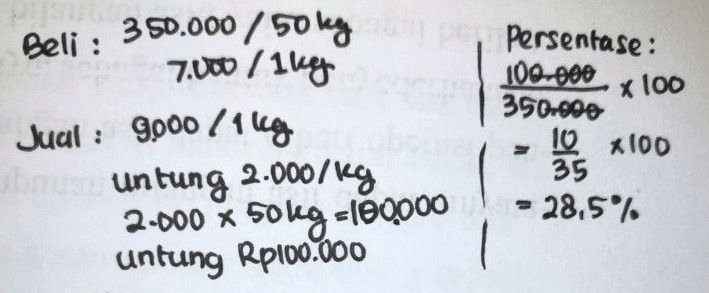 Beli : 350.000 / 50 kg
7.000 / 1 kg
Jual : 9000 / 1 kg
untung 2.000/kg
2.000 x 50 kg = 100.000
untung Rp100.000
Persentase :
100.000
350.000
x 100
= 10
35
x100
= 28,5%